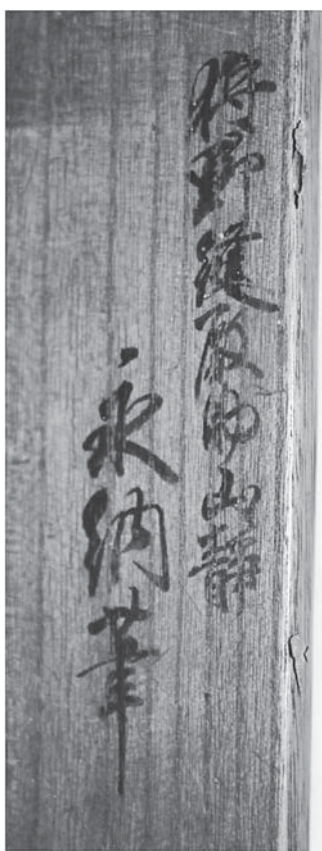 狩野縫殿助山靜
永納筆